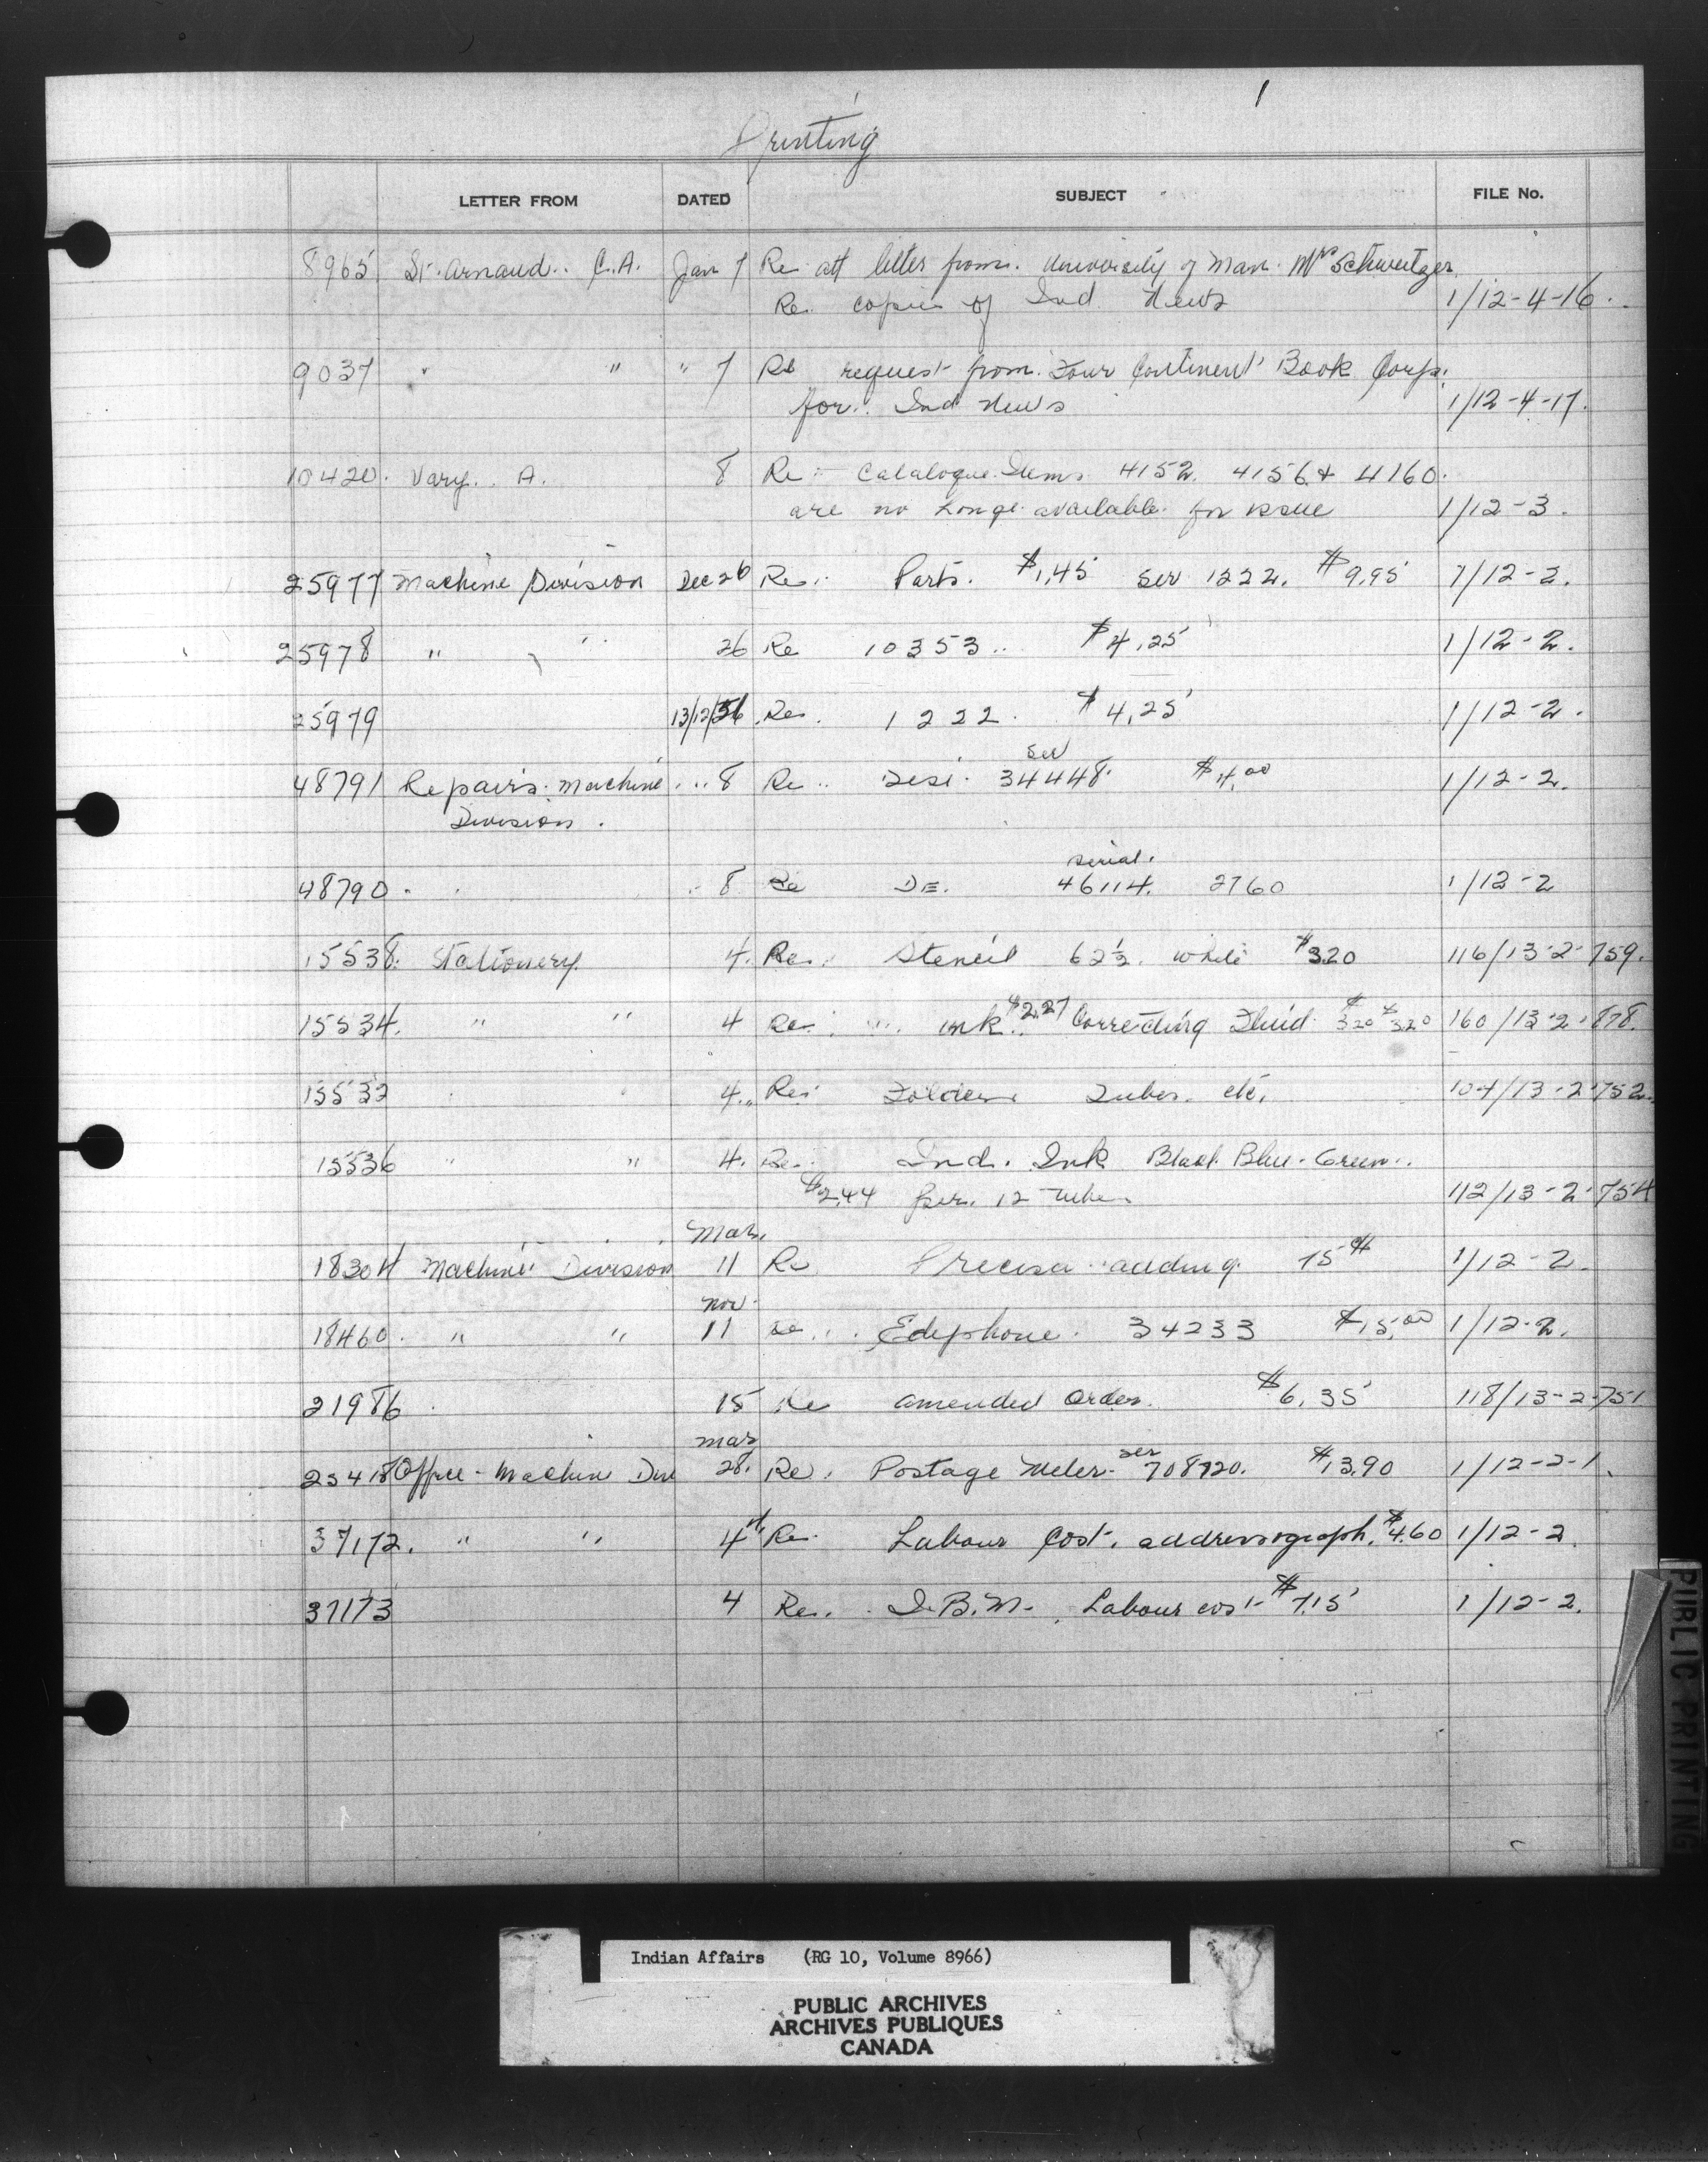 1
Printing
LETTER FROM DATED SUBJECT FILE No.
8965 St. Arnaud.. C.A. Jan 7 Re att letter from. University of Man. Mr Schweitzer
Re. copies of Ind. News 1/12-4-16.
9037 " " " 7 Re request from Four Continent Book Corp.
for. Ind News 1/12-4-17.
10420. Vary. A. 8 Re - Catalogue Items 4152. 4156 & 4160.
are no longe available for issue 1/12-3.
25977 Machine Division Dec 26 Re. Parts. $1.45 Ser 1222. $9.95 1/12-2.
25978 " " 26 Re 10353.. $4.25 1/12-2.
25979 13/12/56. Re. 1222. $4.25 1/12-2.
48791 Repairs. Machine 8 Re .. 34448. $4.00 1/12-2.
Ser
Division.
serial.
48790. 8 Re DE. 46114. 2760 1/12-2
15538. Stationery 4. Re. Stencil 62½. white $3.20 116/13-2-759.
15534. " " 4 Re. ink.. $2.27 Correcting Fluid 3.20 $3.20 160/13-2-878.
15532 4.. Re: Folders Tubes. etc. 104/13-2-752.
15536 " " 4. Re. Ind. Ink Black Blue. Green..
$2.44 per. 12 tubes 112/13-2-754
Mar.
18304 Machine Division 11 Re Precisa adding. 1/12-2.
Nov.
18460. " " 11 Re.. Edephone. 34233 $15.00 1/12-2.
21986. 15 Re amended order. $6.35 118/13-2-751
Mar
25418 Office - Machine Divi 28. Re. Postage Meter. ser 708720. $13.90 1/12-2-1.
37172. " " 4 Re. Labour Cost. addressograph. $4.60 1/12-2.
37173 4 Re. I.B.M. Labour cost $7.15 1/12-2.
PUBLIC PRINTING
Indian Affairs (RG 10, Volume 8966)
PUBLIC ARCHIVES
ARCHIVES PUBLIQUES
CANADA